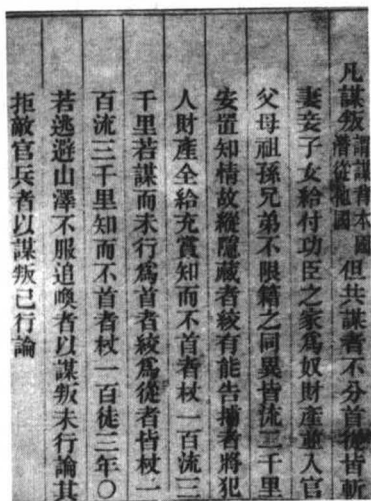 凡謀叛謂謀背本國潛從他國但共謀者不分首從皆斬
妻妾子女給付功臣之家爲奴財產並入官
父母祖孫兄弟不限籍之同異皆流二千里
安置知情故縱隱藏者絞有能告捕者將犯
人財產全給充賞知而不首者杖一百流三
千里若謀而未行爲首者絞爲從者皆杖一
百流三千里知而不首者杖一百徒三年〇
若逃避山澤不服追喚者以謀叛未行論其
拒敵官兵者以謀叛已行論